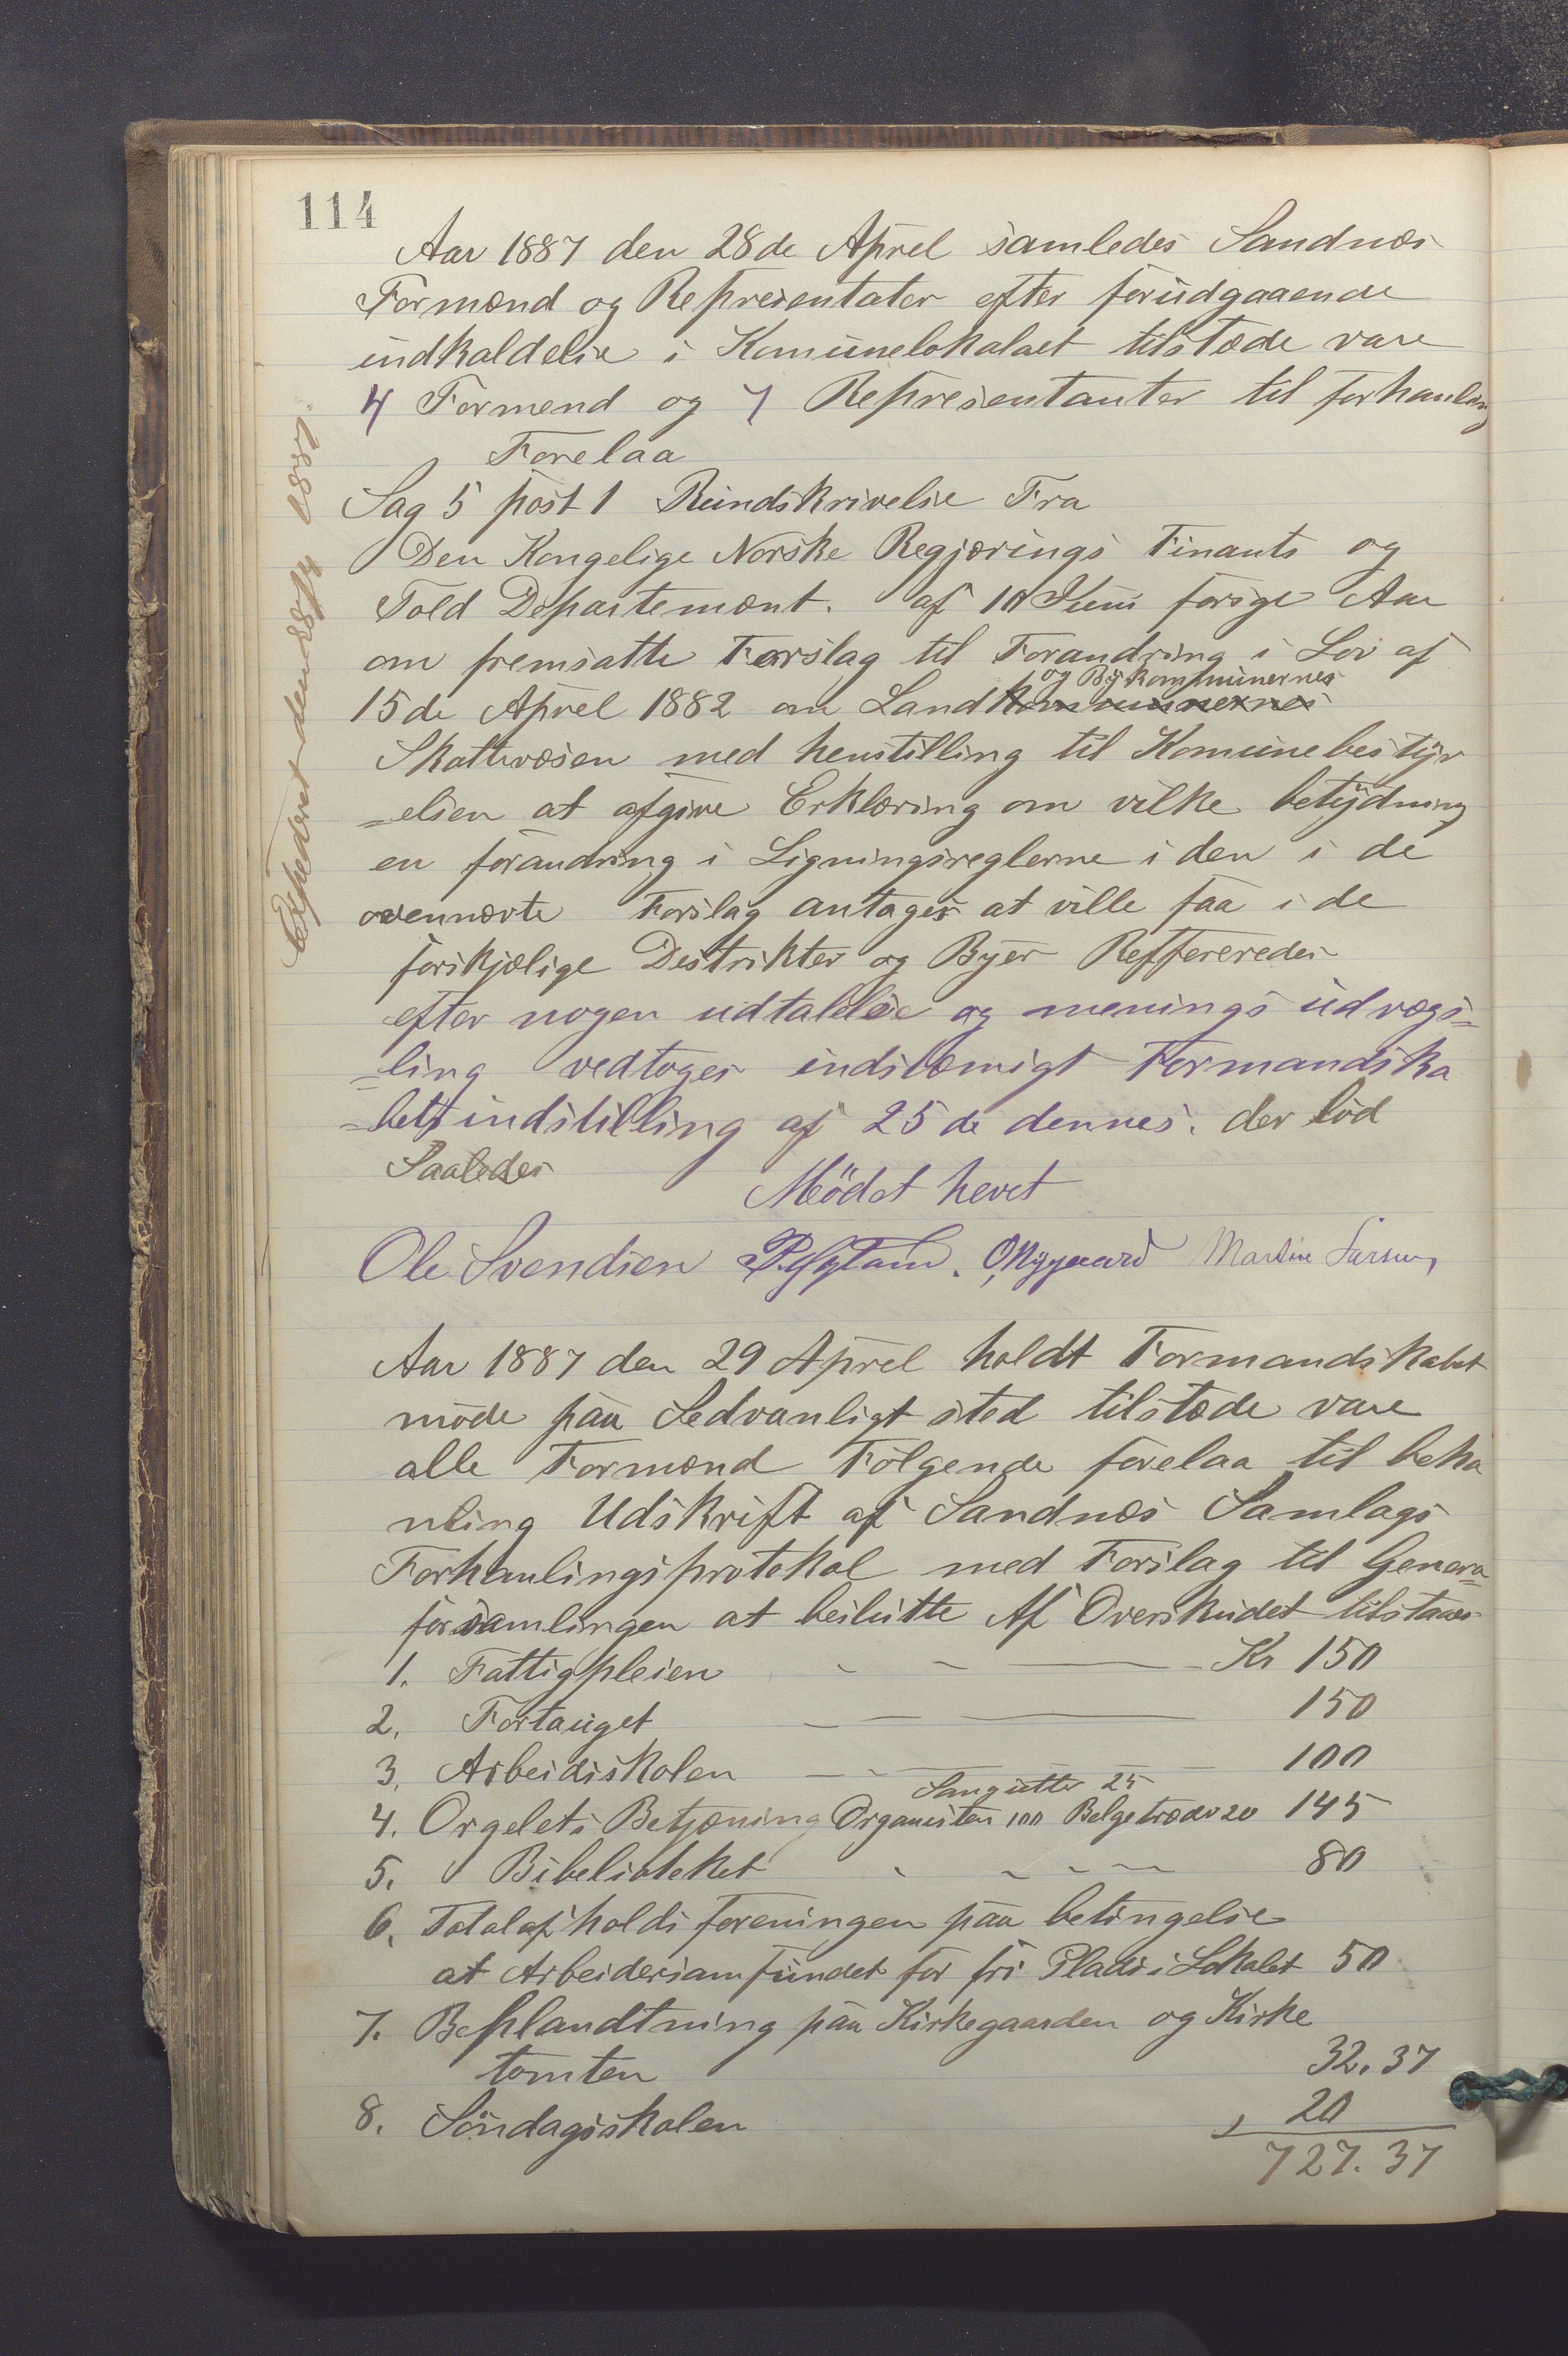 114
Aar 1887 den 28de Aprel samledes Sandnæs
Formænd og Represæntater efter forudgaaende
indkaldelse i Komunelokalaet tilstæde vare
4 Formend og 7 Represientanter til forhanling
Forelaa
Sag 5 post 1 Rundskrivelse Fra
Den Kongelige Norske Regjærings Finants og
Told Departemænt. af 10 Juni forige Aar
om fremsatte Forslag til Forandring i Lov af
og Bykommunernes
15de Aprel 1882 om Landkommunernes
Skattevæsen med henstilling til Komunebestyr
=elsen at afgive Erklæring om vilke betydning
en forandring i Ligningsreglerne i den i de
ovennævte Forslag antages at ville faa i de
forskjælige Destrikter og Byer Reffereredes
efter nogen udtalelse og menings udvægs=
=ling vedtoges indstæmigt Formandska
=bets indstilling af 25de dennes. der lød
Saaledes
Mödet hevet
Ole Svendsen O Nygaard Martin Larsen
Expederet den 28/4 1887.
Aar 1887 den 29 Aprel holdt Formandskabet
møde paa Sedvanligt sted tilstæde vare
alle Formænd Følgende forelaa til beha
nling Udskrift af Sandnæs Samlags
Forhanlingsprotokol med Forslag til Genera=
forsamlingen at beslutte Af Overskudet tilstaaes
1. Fattigpleien Kr 150
2. Fortauget 150
3. Arbeidsskolen 100
Sangutter 25
4. Orgelets Betjæning Organisten 100 Belgetræder 20 145
5. Bibelioteket 80
6. Totalafholdsforeningen paa betingelse
at Arbeidersamfundet for fri Plads i Lokalet 50
7. Beplandtning paa Kirkegaarden og Kirke
tomten 32.37
8. Söndagsskolen , 20
727.37